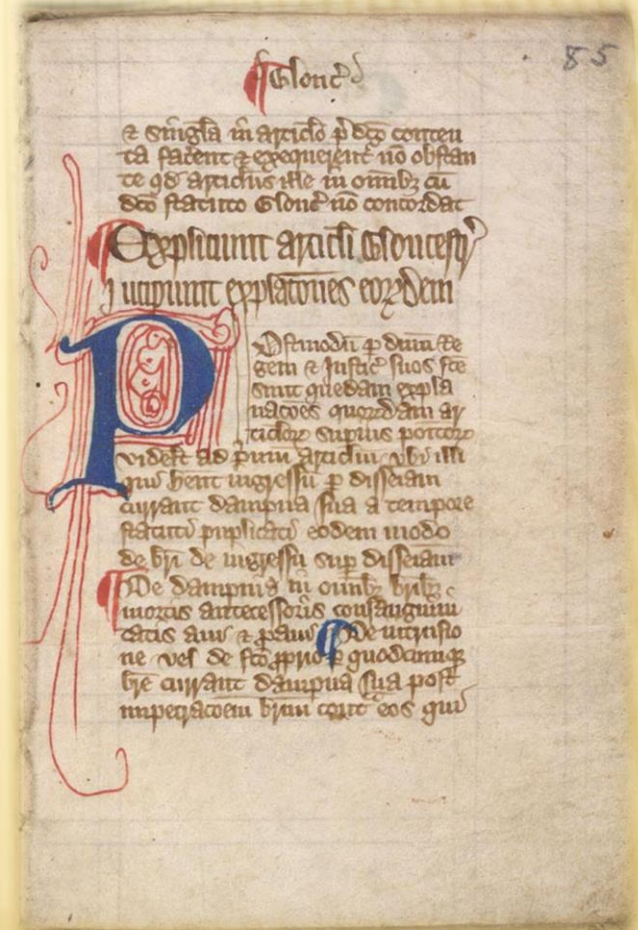 Glouc̃
85
& singl̃a in articl̃o p̃dc̃o conten
ta facient & exequerent᷑ nõ obstan
te qd̃ articlus ille in om̃ibȝ cũ
dc̃o statuto Glouc̃ nõ concordat
Expliciunt articl̃i Gloucestr̃
Incipiunt expl̃atõnes eorꝝdem
Postmodũ p̱ dñm Re
gem & Justic̃ suos fc̃e
sunt quedam expla
nac̃oes quorꝝdam ar
ticl̃orꝝ superius positorꝝ
videl̃t ad p̃mũ articl̃m vbi illi
qui hẽnt ingressũ p̱ disseisam
currant dampna sua a tempore
statuti puplicati eodem modo
de br̃i de ingressu sup̱ disseisam
De dampnis in om̃ibȝ brĩbȝ
mortis antecessoris consanguini
tatis aui & p̃aui De intrusio
ne vel de fc̃o ꝓprio p̱ quodcumqȝ
br̃e currant dampna sua post
impetrac̃oem br̃ium cont̃ eos qui